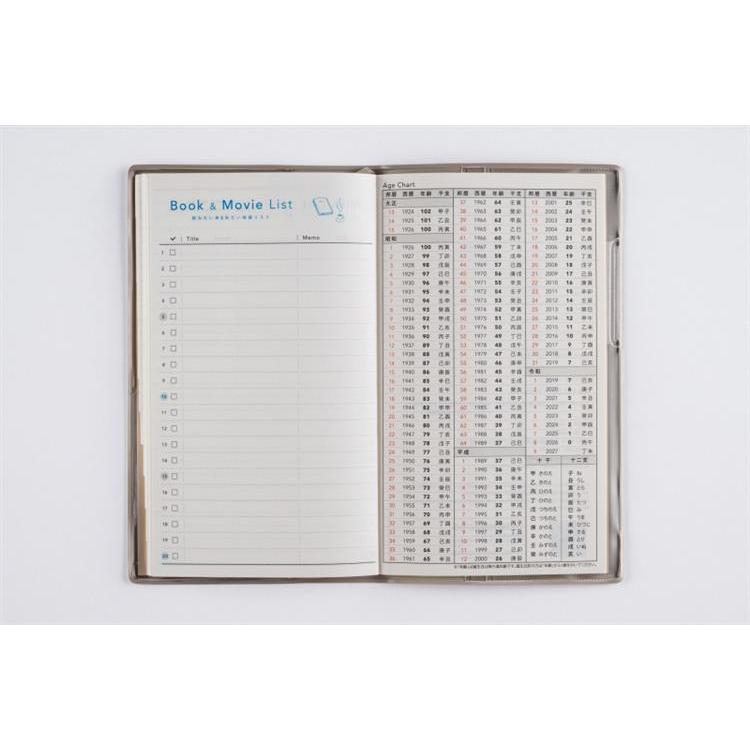 Book & Movie List
読みたい本&みたい映画リスト
✓ Title Memo
1
2
3
4
5
6
7
8
9
10
11
12
13
14
15
16
17
18
19
20
Age Chart
邦暦 西暦 年齢 干支
大正
13 1924 102 甲子
14 1925 101 乙丑
15 1926 100 丙寅
昭和
1 1926 100 丙寅
2 1927 99 丁卯
3 1928 98 戊辰
4 1929 97 己巳
5 1930 96 庚午
6 1931 95 辛未
7 1932 94 壬申
8 1933 93 癸酉
9 1934 92 甲戌
10 1935 91 乙亥
11 1936 90 丙子
12 1937 89 丁丑
13 1938 88 戊寅
14 1939 87 己卯
15 1940 86 庚辰
16 1941 85 辛巳
17 1942 84 壬午
18 1943 83 癸未
19 1944 82 甲申
20 1945 81 乙酉
21 1946 80 丙戌
22 1947 79 丁亥
23 1948 78 戊子
24 1949 77 己丑
25 1950 76 庚寅
26 1951 75 辛卯
27 1952 74 壬辰
28 1953 73 癸巳
29 1954 72 甲午
30 1955 71 乙未
31 1956 70 丙申
32 1957 69 丁酉
33 1958 68 戊戌
34 1959 67 己亥
35 1960 66 庚子
36 1961 65 辛丑
邦暦 西暦 年齢 干支
37 1962 64 壬寅
38 1963 63 癸卯
39 1964 62 甲辰
40 1965 61 乙巳
41 1966 60 丙午
42 1967 59 丁未
43 1968 58 戊申
44 1969 57 己酉
45 1970 56 庚戌
46 1971 55 辛亥
47 1972 54 壬子
48 1973 53 癸丑
49 1974 52 甲寅
50 1975 51 乙卯
51 1976 50 丙辰
52 1977 49 丁巳
53 1978 48 戊午
54 1979 47 己未
55 1980 46 庚申
56 1981 45 辛酉
57 1982 44 壬戌
58 1983 43 癸亥
59 1984 42 甲子
60 1985 41 乙丑
61 1986 40 丙寅
62 1987 39 丁卯
63 1988 38 戊辰
64 1989 37 己巳
平成
1 1989 37 己巳
2 1990 36 庚午
3 1991 35 辛未
4 1992 34 壬申
5 1993 33 癸酉
6 1994 32 甲戌
7 1995 31 乙亥
8 1996 30 丙子
9 1997 29 丁丑
10 1998 28 戊寅
11 1999 27 己卯
12 2000 26 庚辰
邦暦 西暦 年齢 干支
13 2001 25 辛巳
14 2002 24 壬午
15 2003 23 癸未
16 2004 22 甲申
17 2005 21 乙酉
18 2006 20 丙戌
19 2007 19 丁亥
20 2008 18 戊子
21 2009 17 己丑
22 2010 16 庚寅
23 2011 15 辛卯
24 2012 14 壬辰
25 2013 13 癸巳
26 2014 12 甲午
27 2015 11 乙未
28 2016 10 丙申
29 2017 9 丁酉
30 2018 8 戊戌
31 2019 7 己亥
令和
1 2019 7 己亥
2 2020 6 庚子
3 2021 5 辛丑
4 2022 4 壬寅
5 2023 3 癸卯
6 2024 2 甲辰
7 2025 1 乙巳
8 2026 0 丙午
9 2027 丁未
十干 十二支
甲 きのえ
乙 きのと
丙 ひのえ
丁 ひのと
戊 つちのえ
己 つちのと
庚 かのえ
辛 かのと
壬 みずのえ
癸 みずのと
子 ね
丑 うし
寅 とら
卯 う
辰 たつ
巳 み
午 うま
未 ひつじ
申 さる
酉 とり
戌 いぬ
亥 い